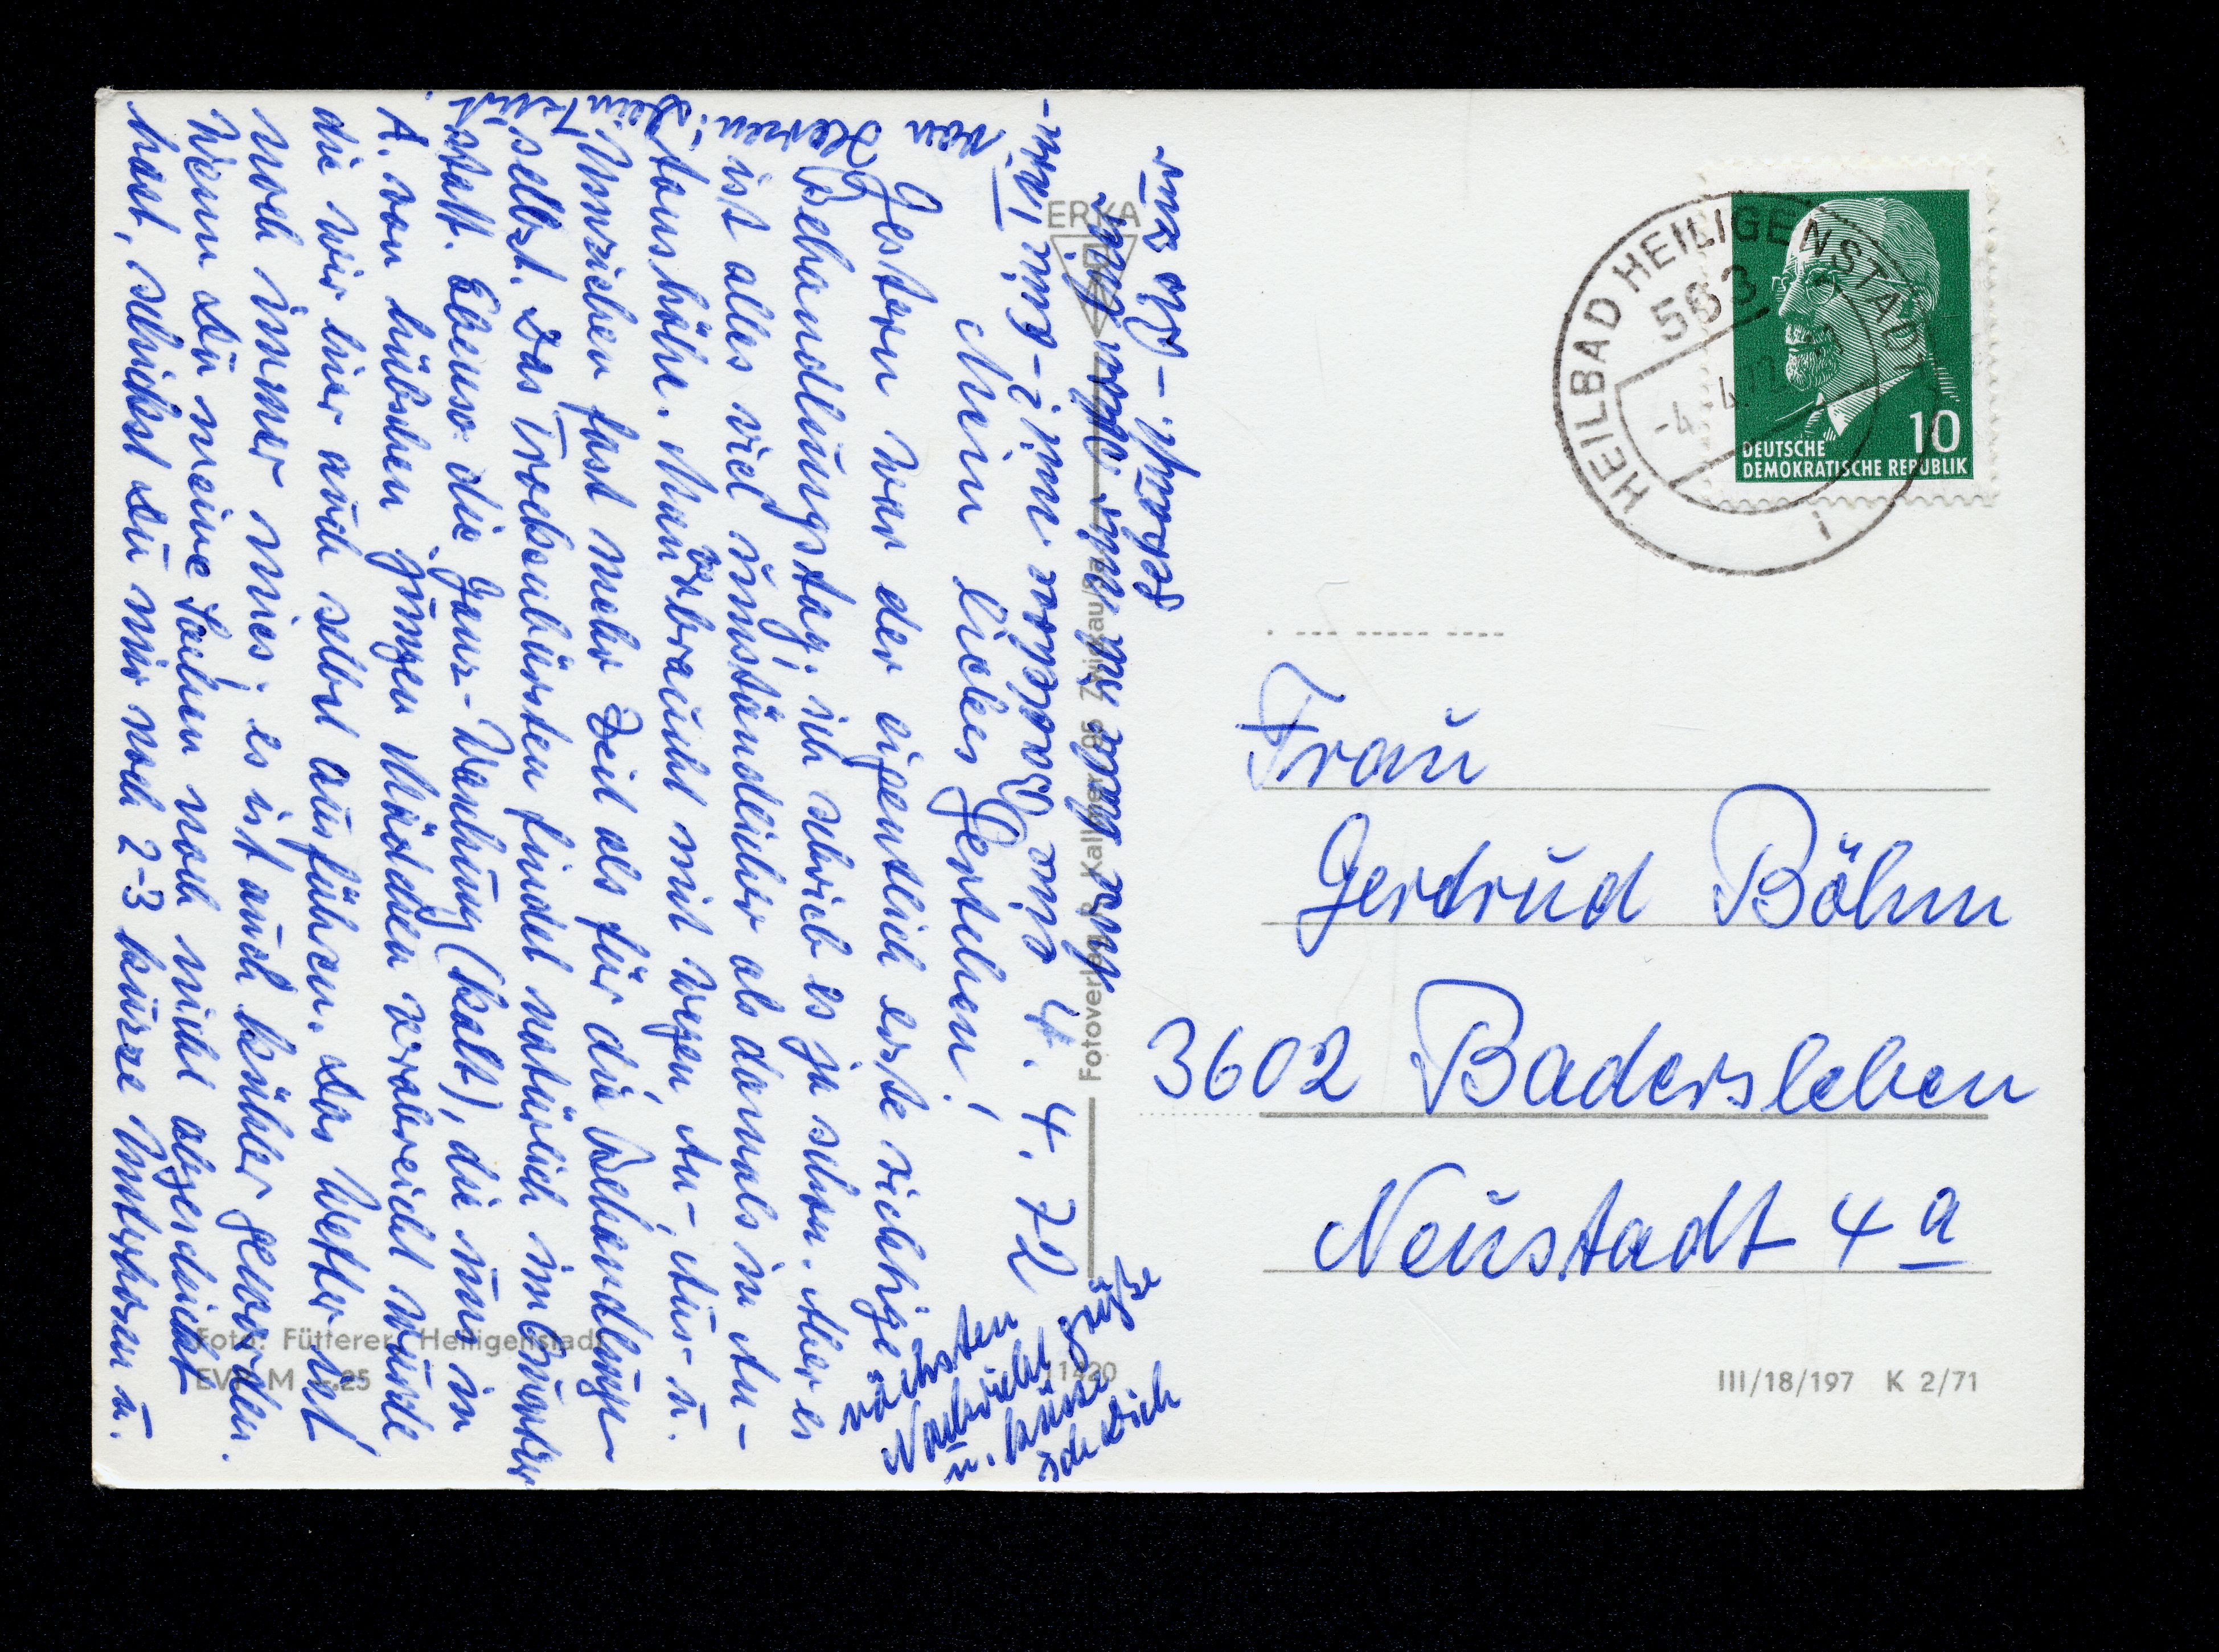 4. 4. 72
Mein liebes Gertchen!
Gestern war der eigentlich erste richtige
Behandlungstag; ich schrieb es ja schon. Aber es
ist alles viel umständlicher als damals in An-
tonshöhe. Man verbraucht mit wegen An-, Aus- u.
Umziehen fast mehr Zeit als für die Behandlung
selbst. Das Trockenbürsten findet natürlich im
statt. Ebenso die Ganz-Waschung (kalt), die uns in
A. von hübschen jungen Mädchen verabreicht wurde
die wir hier auch selbst ausführen. Das Wetter ist
noch immer mies; es ist auch kühler geworden.
Wenn Du meine Sachen noch nicht abgeschickt
hast, schickst Du mir noch 2-3 kurze Unterhosen u.
nächsten
Nachricht grüße
u. küsse
ich Dich
von Herzen!
Dein
ERIKA
Fotoverlag R. Kallmer, 95 Zwickau/Sa.
Foto: Fütterer, Heiligenstadt
11420
HEILBAD HEILIGENSTADT
583
-4.-4.72
1
10
DEUTSCHE
DEMOKRATISCHE REPUBLIK
Frau
Gertrud Böhm
3602 Badersleben
Neustadt 4 a
III/18/197 K 2/71